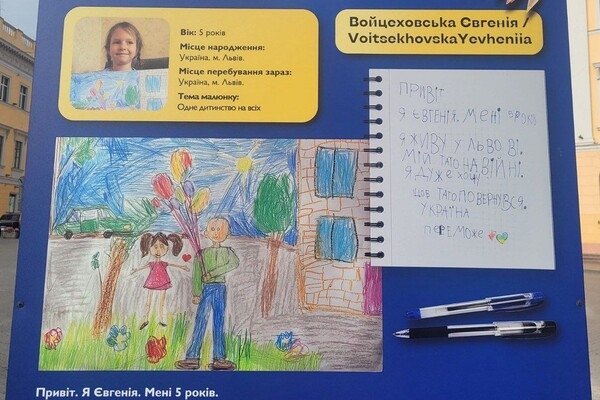 Вік: 5 років
Місце народження:
Україна, м. Львів.
Місце перебування зараз:
Україна, м. Львів.
Тема малюнку:
Одне дитинство на всіх
Войцеховська Євгенія /
VoitsekhovskaYevheniia
ПРИВІТ
Я ЄВГЕНІЯ. МЕНІ 5 РОКІВ
Я ЖИВУ У ЛЬВОВІ.
МІЙ ТАТО НА ВІЙНІ.
Я ДУЖЕ ХОЧУ
ЩОБ ТАТО ПОВЕРНУВСЯ.
УКРАЇНА
ПЕРЕМОЖЕ
Привіт. Я Євгенія. Мені 5 років.